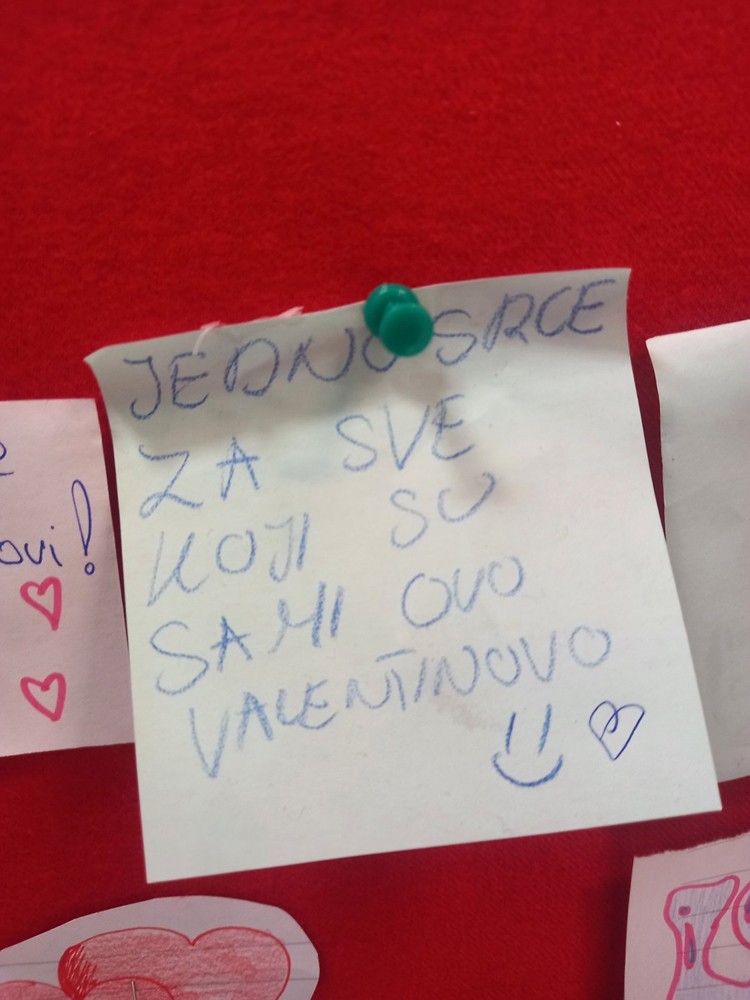 JEDNO SRCE
ZA SVE
KOJI SU
SAMI OVO
VALENTINOVO
ovi!